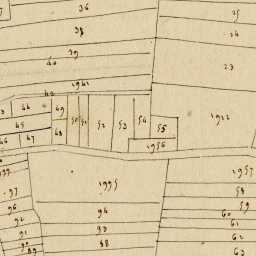 36
25
38
24
39
40
23
44
49
45
46
47
48
52
53
54
55
1922
1956
1995
1957
97
58
96
94
59
60
92
61
91
93
62
90
89
88
63